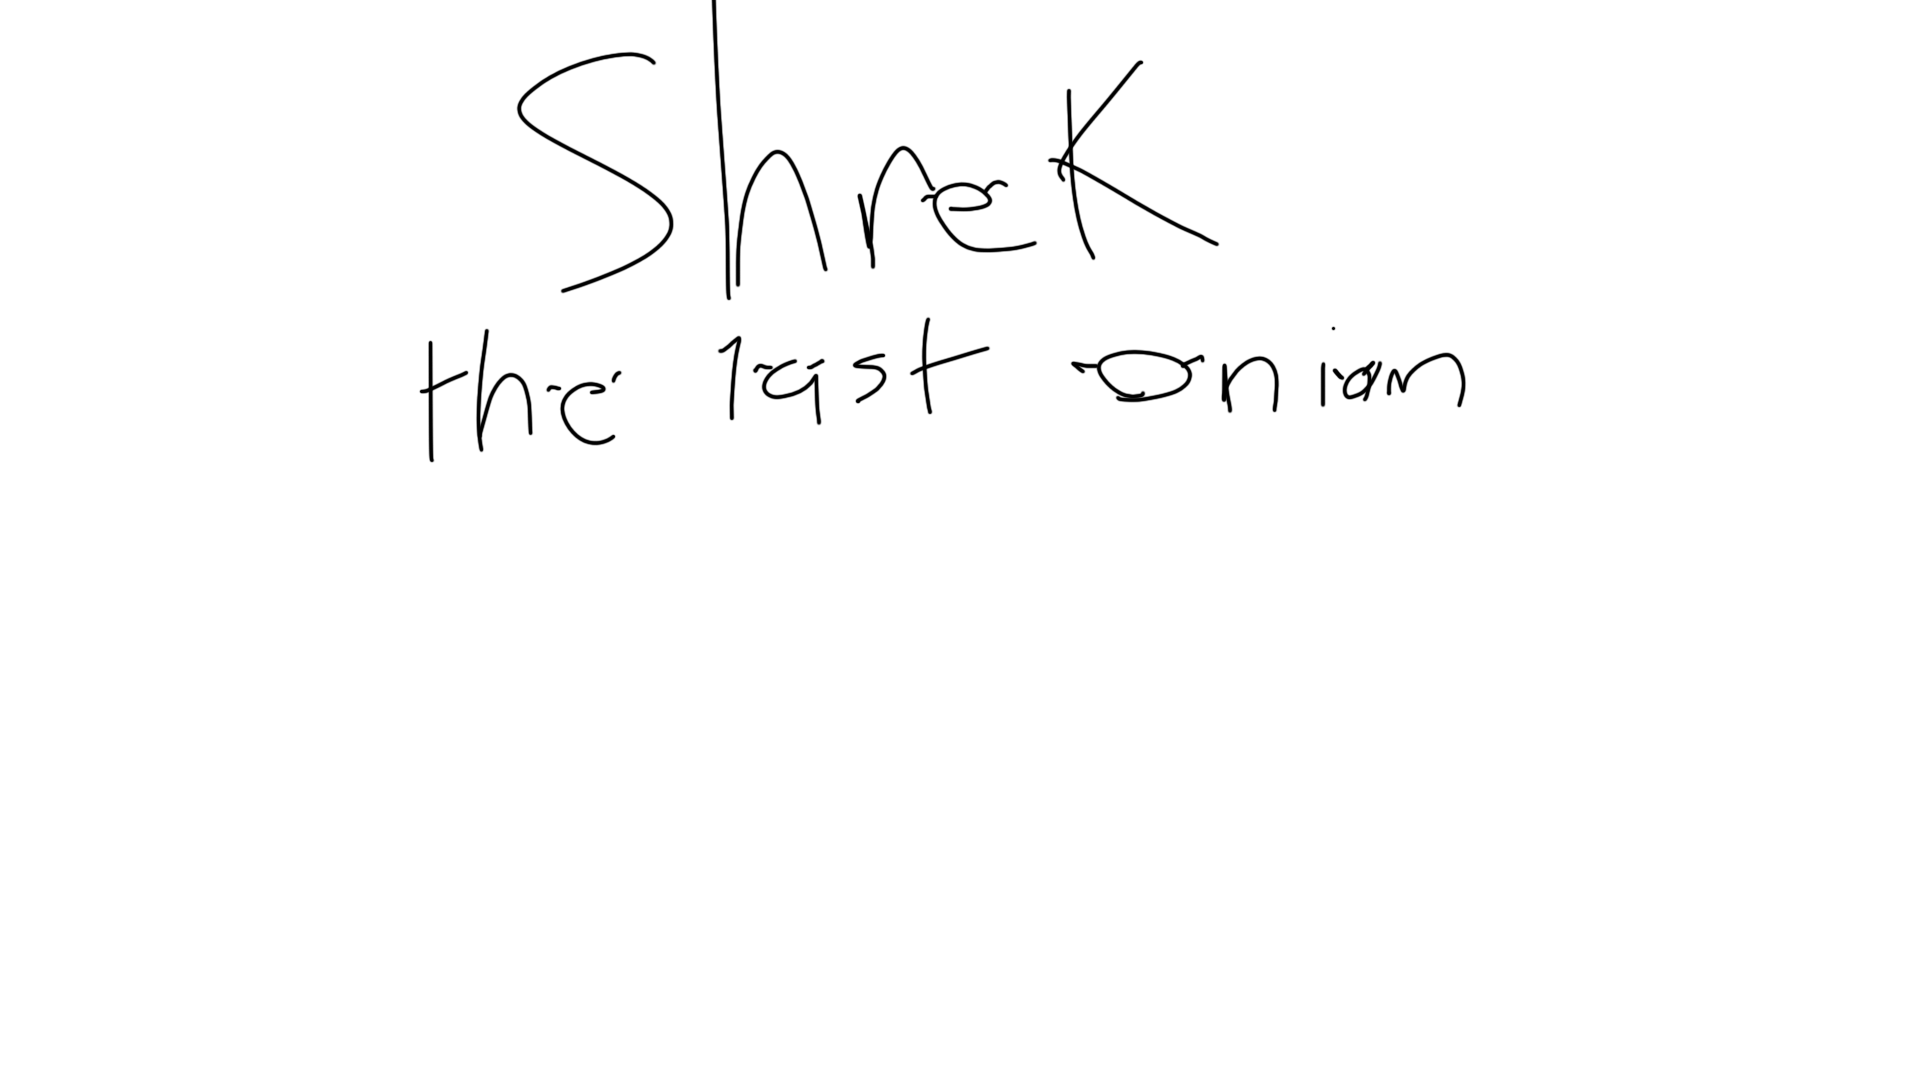 Shrek
the last oniom